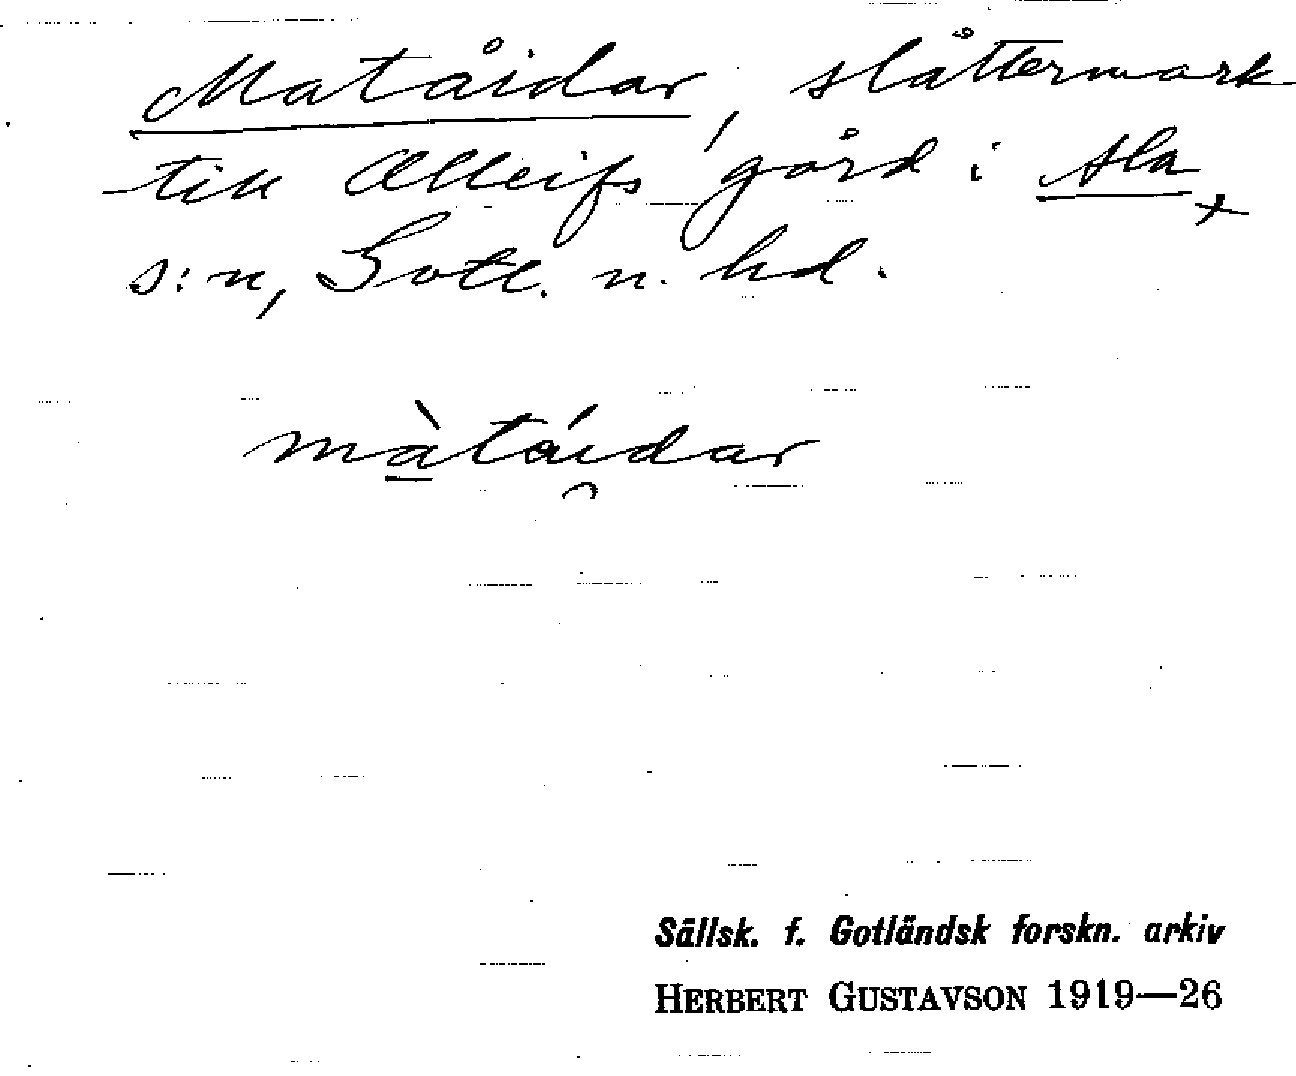 Matåidar, slåttermark
till Alleifs gård i Ala
s:n, Gotl. n. hd.
màtáıdar
Sällsk. f. Gotländsk forskn. arkiv
HERBERT GUSTAVSON 1919—26